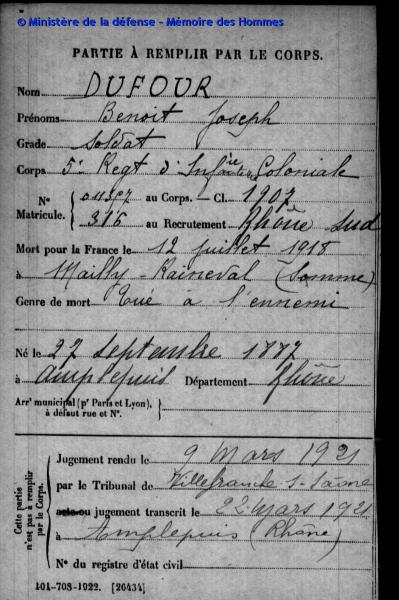 © Ministère de la défense - Mémoire des Hommes
PARTIE À REMPLIR PAR LE CORPS.
Nom DUFOUR
Prénoms Benoit Joseph
Grade Soldat
Corps 5e Regt d'Infie Coloniale
N° Matricule. { au Corps. — Cl. 1907
316 au Recrutement Rhône Sud
Mort pour la France le 12 juillet 1918
à Mailly-Raineval (Somme)
Genre de mort Tué a l'ennemi
Né le 27 septembre 1887
à Amplepuis Département Rhône
Arrt municipal (pr Paris et Lyon), à défaut rue et N°.
Cette partie n'est pas à remplir par le Corps.
Jugement rendu le 9 Mars 1921
par le Tribunal de Villefranche s-Saône
acte ou jugement transcrit le 22 Mars 1921
à Amplepuis (Rhône)
N° du registre d'état civil
101-708-1922. [26434]